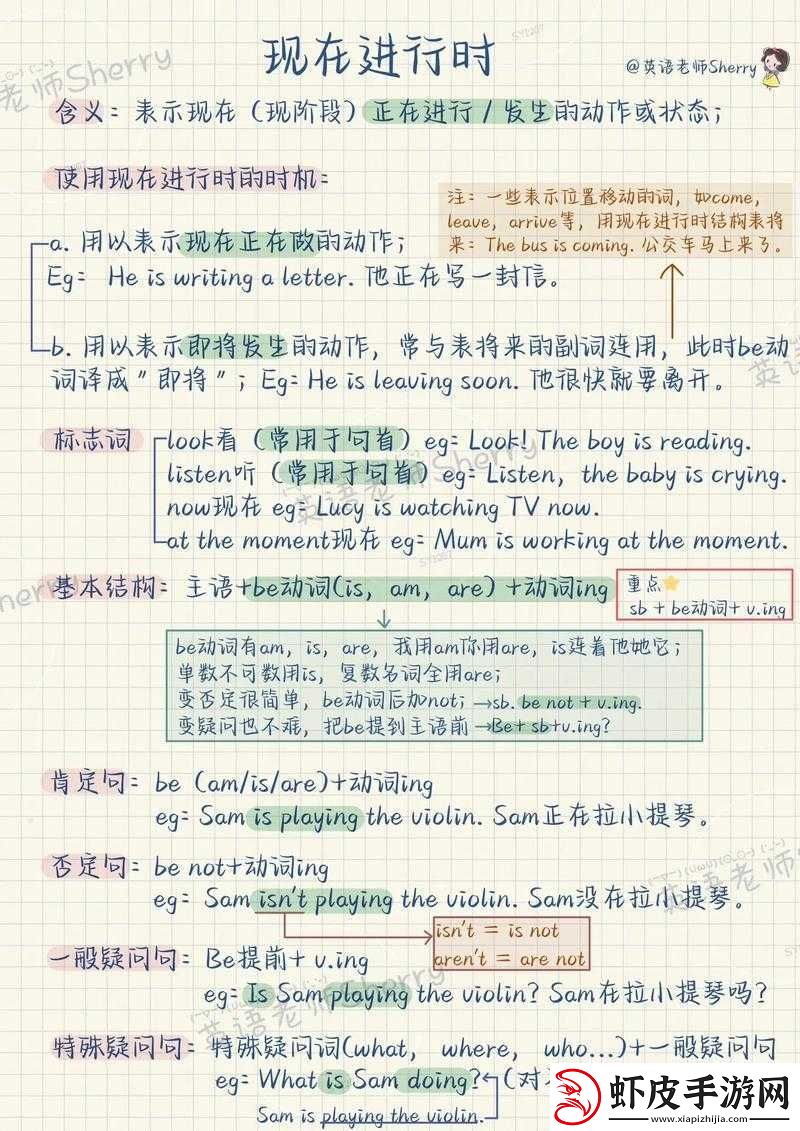 现在进行时
@英语老师Sherry
含义：表示现在（现阶段）正在进行/发生的动作或状态；
使用现在进行时的时机：
注：一些表示位置移动的词，如come，
leave，arrive等，用现在进行时结构表将
来：The bus is coming. 公交车马上来了。
a. 用以表示现在正在做的动作；
Eg： He is writing a letter. 他正在写一封信。
b. 用以表示即将发生的动作，常与表将来的副词连用，此时be动
词译成"即将"；Eg：He is leaving soon. 他很快就要离开。
标志词 look看（常用于句首）eg：Look! The boy is reading.
listen听（常用于句首）eg：Listen，the baby is crying.
now现在 eg：Lucy is watching TV now.
at the moment现在 eg：Mum is working at the moment.
基本结构：主语+be动词(is，am，are）+动词ing
重点
sb + be动词+ v.ing
be动词有am，is，are，我用am你用are，is连着他她它；
单数不可数用is，复数名词全用are；
变否定很简单，be动词后加not；→sb. be not + v.ing.
变疑问也不难，把be提到主语前→Be+ sb+v.ing?
肯定句：be（am/is/are)+动词ing
eg：Sam is playing the violin. Sam正在拉小提琴。
否定句：be not+动词ing
eg：Sam isn't playing the violin. Sam没在拉小提琴。
isn't = is not
aren't = are not
一般疑问句：Be提前+ v.ing
eg：Is Sam playing the violin? Sam在拉小提琴吗？
特殊疑问句：特殊疑问词(what， where， who...)+一般疑问句
eg：What is Sam doing?（对
Sam is playing the violin.
虾皮手游网
www.xiapizhijia.com
英语老师Sherry